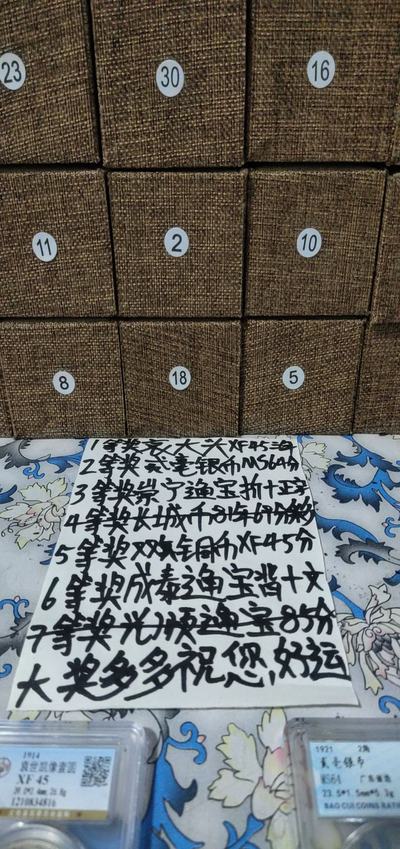 23 30 16
11 2 10
8 18 5
1等奖袁大头XF45
2等奖贰毫银币MS64分
3等奖崇宁通宝折十正字
4等奖长城币81年67分
5等奖双旗铜币XF45分
6等奖成泰通宝背十文
7等奖光顺通宝85分
大奖多多祝您好运
1914
袁世凯像壹圆
XF 45
1210834816
1921 2角
贰毫银币
MS64 广东省造
23.5*1.5mm*5.3g
BAO CUI COINS